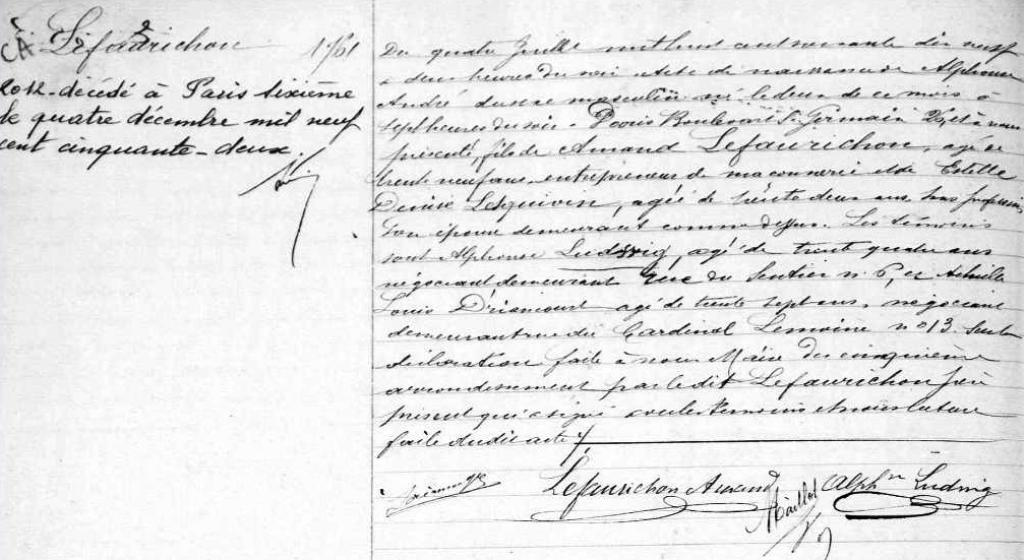 Lefaurichon 1761
décédé à Paris sixième
le quatre décembre mil neuf
cent cinquante-deux.
Du quatre Juillet mil huit cent soixante dix neuf
à deux heures du soir Acte de naissance de Alphonse
André du sexe masculin né le deux de ce mois à
sept heures du soir. Paris Boulevard St Germain
présenté, fils de Amand Lefaurichon, agé de
trente neuf ans, entrepreneur de maconnerie et de Estelle
Denise Lesquivin, agée de trente deux ans, sans profession,
Son épouse demeurant comme dessus. Les témoins
sont Alphonse Ludwig, agé de trente quatre ans
négociant demeurant rue du Sentier n° 6, et Achille
Louis Driancourt agé de trente sept ans, négociant
demeurant rue du Cardinal Lemoine n° 13. Sur la
déclaration faite à nous Maire du cinquième
arrondissement par le dit Lefaurichon père
présent qui a signé avec les témoins et nous lecture
faite dudit acte ;/.
Lefaurichon Amand Maillot Alph Ludwig